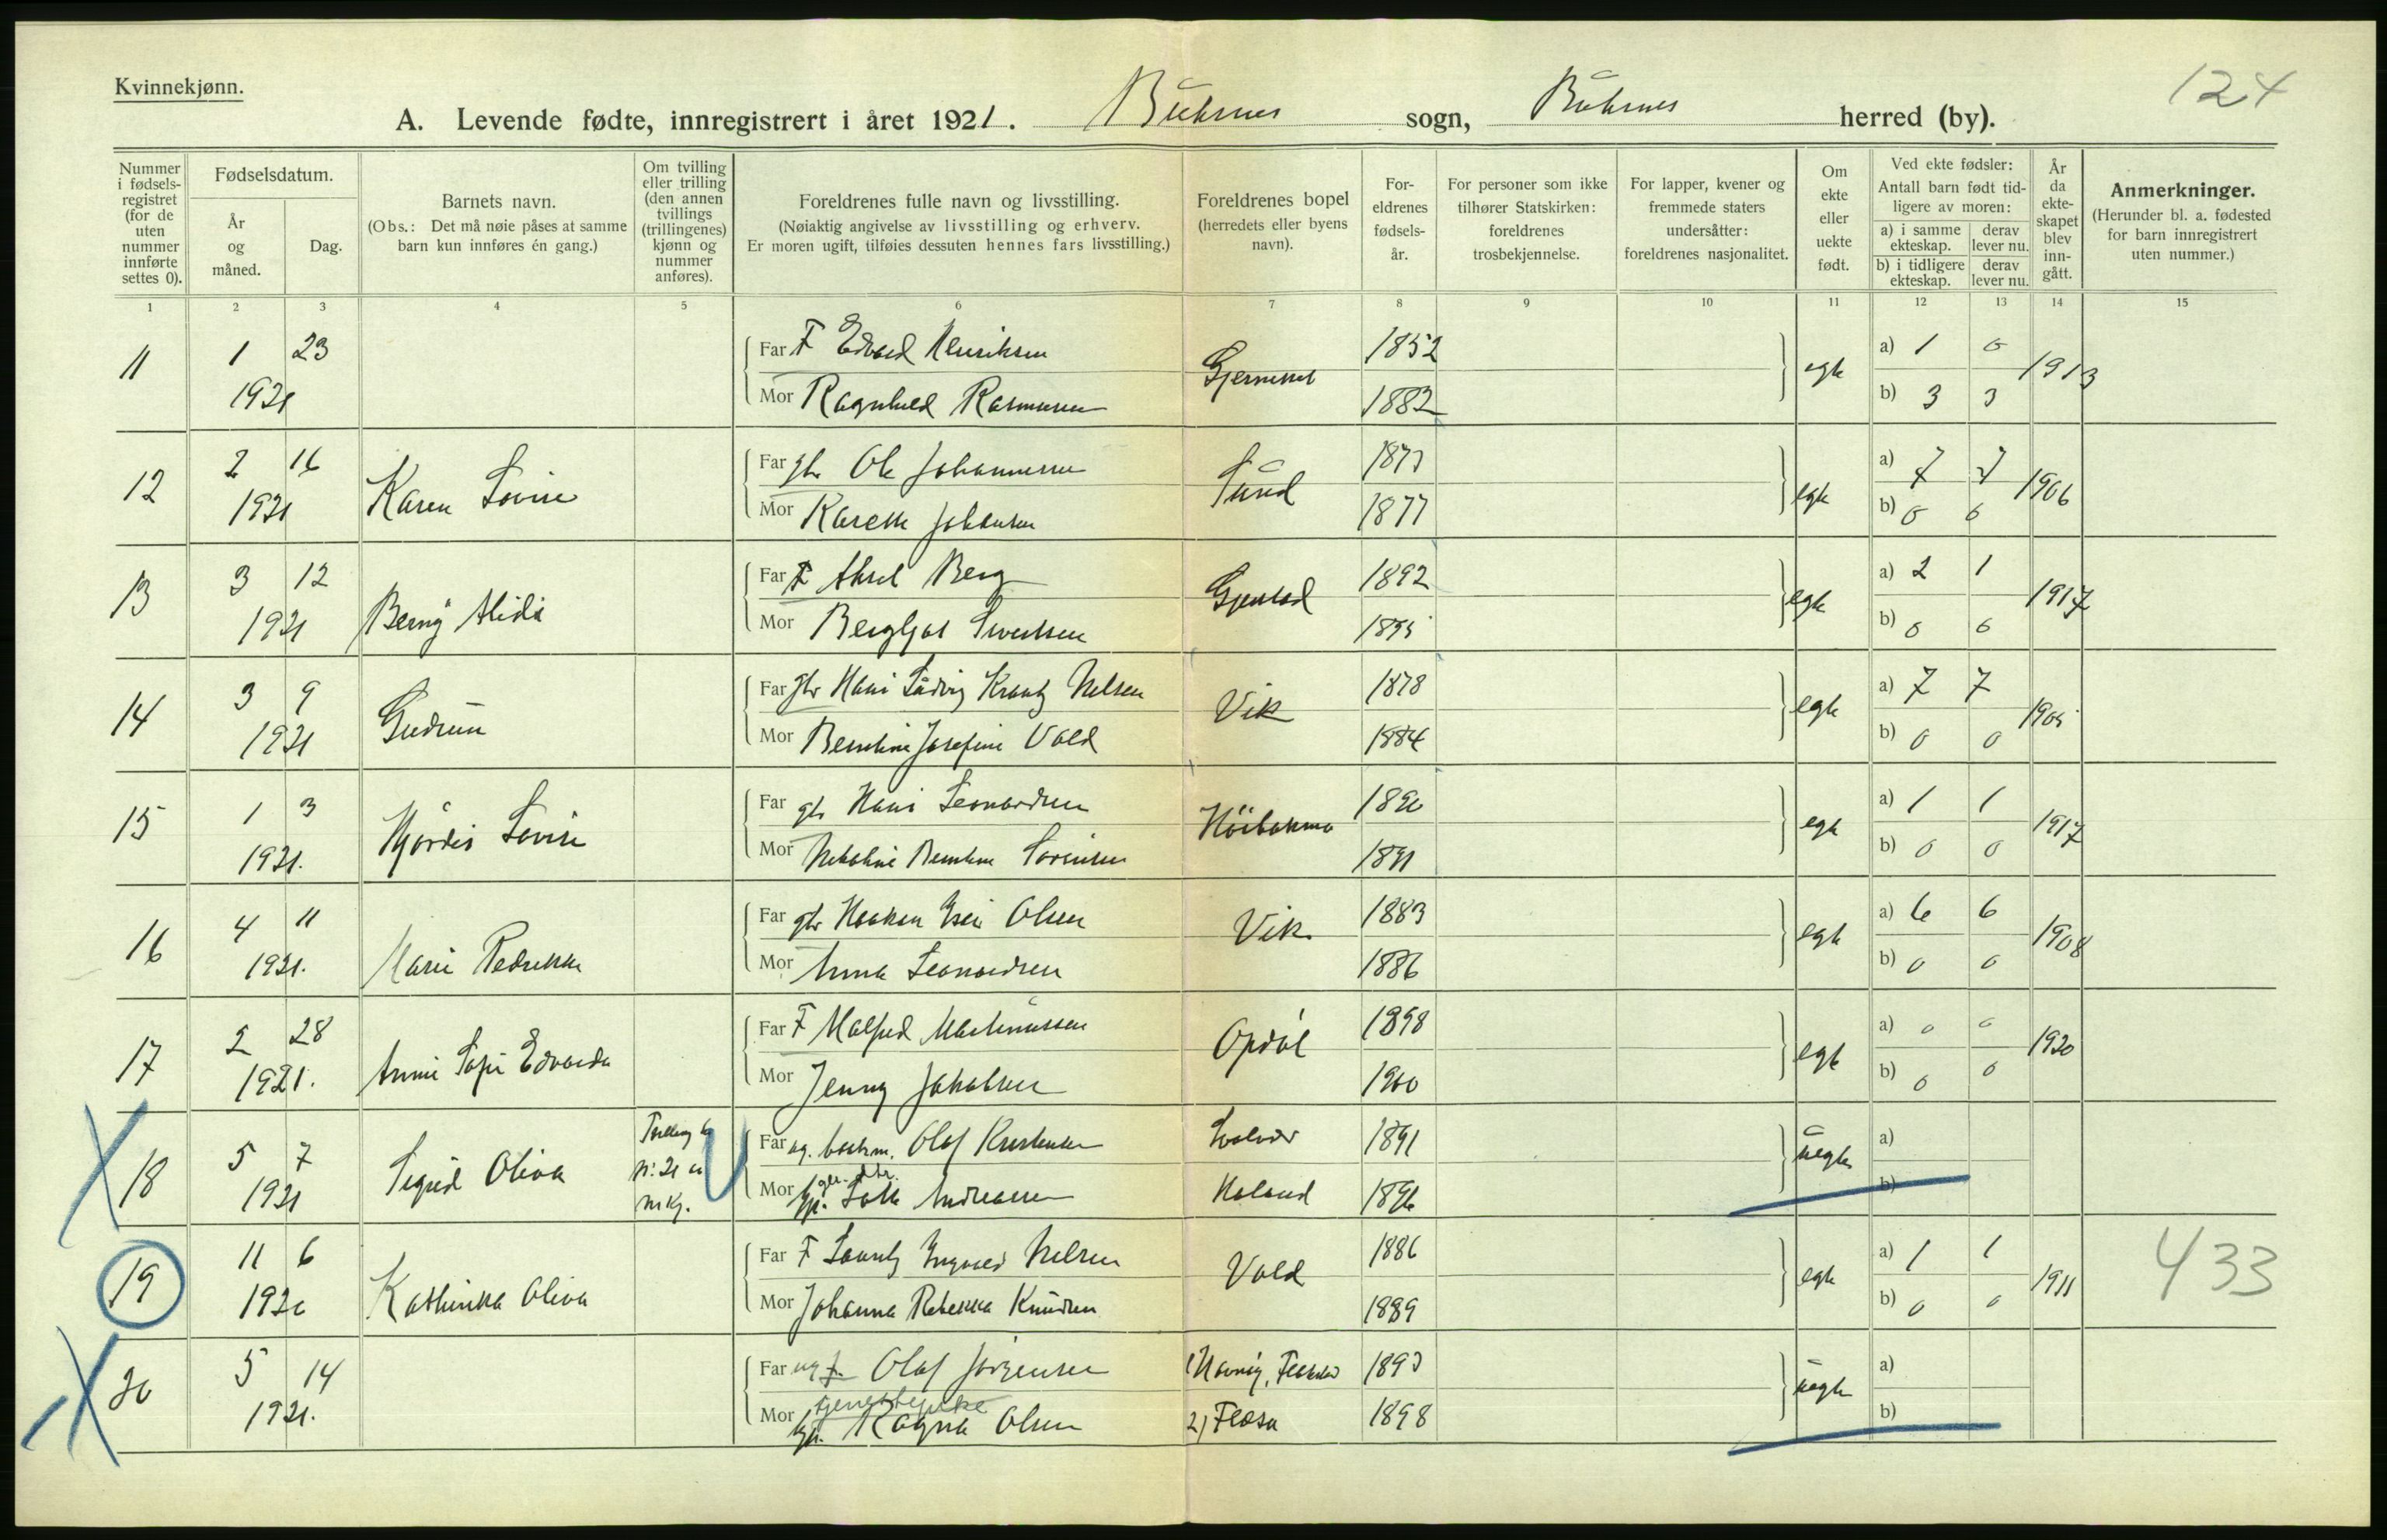 Kvinnekjønn.
124
A. Levende fødte, innregistrert i året 1921. Buksnes sogn, Buksnes herred (by).
Nummer i fødselsregistret (for de uten nummer innførte settes 0).
Fødselsdatum.
År og måned.
Dag.
Barnets navn.
(Obs.: Det må nøie påses at samme barn kun innføres én gang.)
Om tvilling eller trilling (den annen tvillings (trillingenes) kjønn og nummer anføres).
Foreldrenes fulle navn og livsstilling.
(Nøiaktig angivelse av livsstilling og erhverv.
Er moren ugift, tilføies dessuten hennes fars livsstilling.)
Foreldrenes bopel
(herredets eller byens navn).
Foreldrenes fødselsår.
For personer som ikke tilhører Statskirken: foreldrenes trosbekjennelse.
For lapper, kvener og fremmede staters undersåtter: foreldrenes nasjonalitet.
Om ekte eller uekte født.
Ved ekte fødsler:
Antall barn født tidligere av moren:
a) i samme ekteskap.
derav lever nu.
b) i tidligere ekteskap.
derav lever nu.
År da ekteskapet blev inngått.
Anmerkninger.
(Herunder bl. a. fødested for barn innregistrert uten nummer.)
1 2 3 4 5 6 7 8 9 10 11 12 13 14 15
11 1 23 Far F Edvard Henriksen 1852 egte a) 1 0 1913
1921 Mor Ragnhild Rasmussen 1882 b) 3 3
12 2 16 Karen Lovise Far gbr Ole Johannessen Sund 1873 egte a) 7 7 1906
1921 Mor Karelle Johansen 1877 b) 0 0
13 3 12 Berny Alida Far F Aksel Berg Gjerstad 1892 egte a) 2 1 1917
1921 Mor Bergljot Sivertsen 1895 b) 0 0
14 3 9 Gudrun Far gbr Hans Ludvig Krantz Nilsen Vik 1878 egte a) 7 7 1905
1921 Mor Berntine Josefine Vold 1884 b) 0 0
15 1 3 Hjørdis Lovise Far gbr Hans Leonardsen 1890 egte a) 1 1 1917
1921. Mor Berntine Sørensen 1891 b) 0 0
16 4 11 Marie Pedrikke Far gbr Haakon Olsen Vik. 1883 egte a) 6 6 1908
1921. Mor Anna Leonardsen 1886 b) 0 0
17 2 28 Annie Sofie Edvarda Far F Halfred Martinussen Opdøl 1898 egte a) 0 0 1920
1921. Mor Jenny Jakobsen 1900 b) 0 0
18 5 7 Sigrid Oliva Tvilling til Far ug. Olaf Kristensen Solvær 1891 uegte a)
1921 nr. 21 mkj. Mor Andreassen Holand 1896 b)
19 11 6 Kathinka Oliva Far F Lauritz Ingvald Nilsen Vold 1886 egte a) 1 1 1911 433
1920 Mor Johanna Rebekka Knudsen 1889 b) 0 0
20 5 14 Far ug F. Olaf Jørgensen 1893 uegte a)
1921. tjenestepike
Mor Ragna Olsen 2) Flæsa 1898 b)